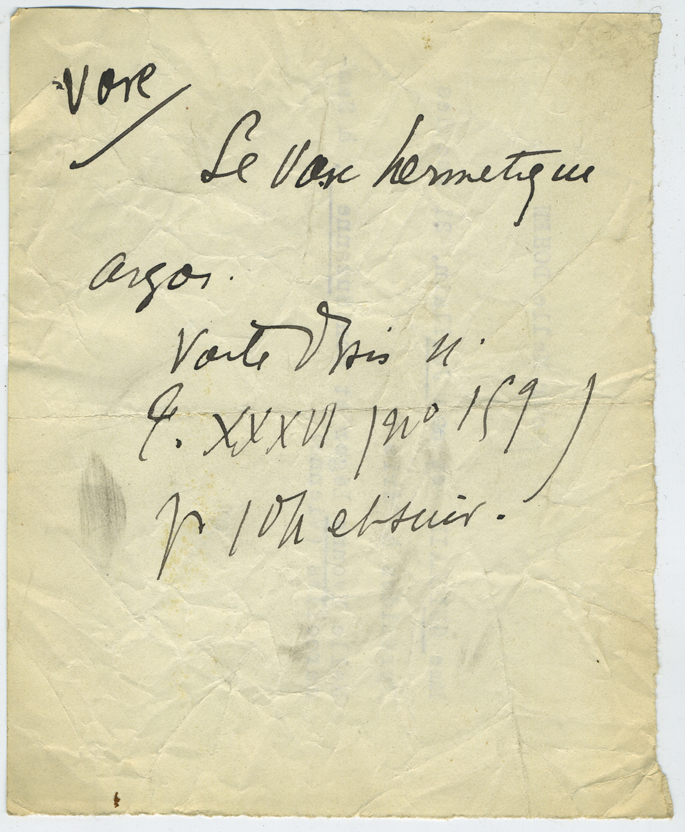 Vase
Le Vase hermetique
argos.
Voile d'Isis n.
T. XXXVI (no 159)
p 104 et suiv.